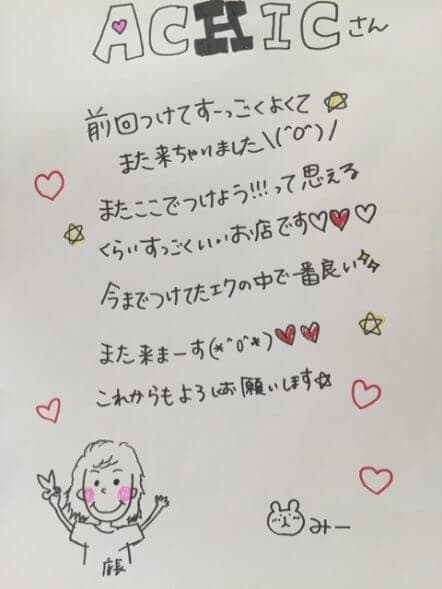 ACHICさん
前回つけてすーっごくよくて
また来ちゃいました\(^O^)/
またここでつけよう!!!って思える
くらいすっごくいいお店です♡♥♡
今までつけてたエクの中で一番良い
また来まーす(*^o^*)♥♥
これからもよろしお願いします☆
店長
みー